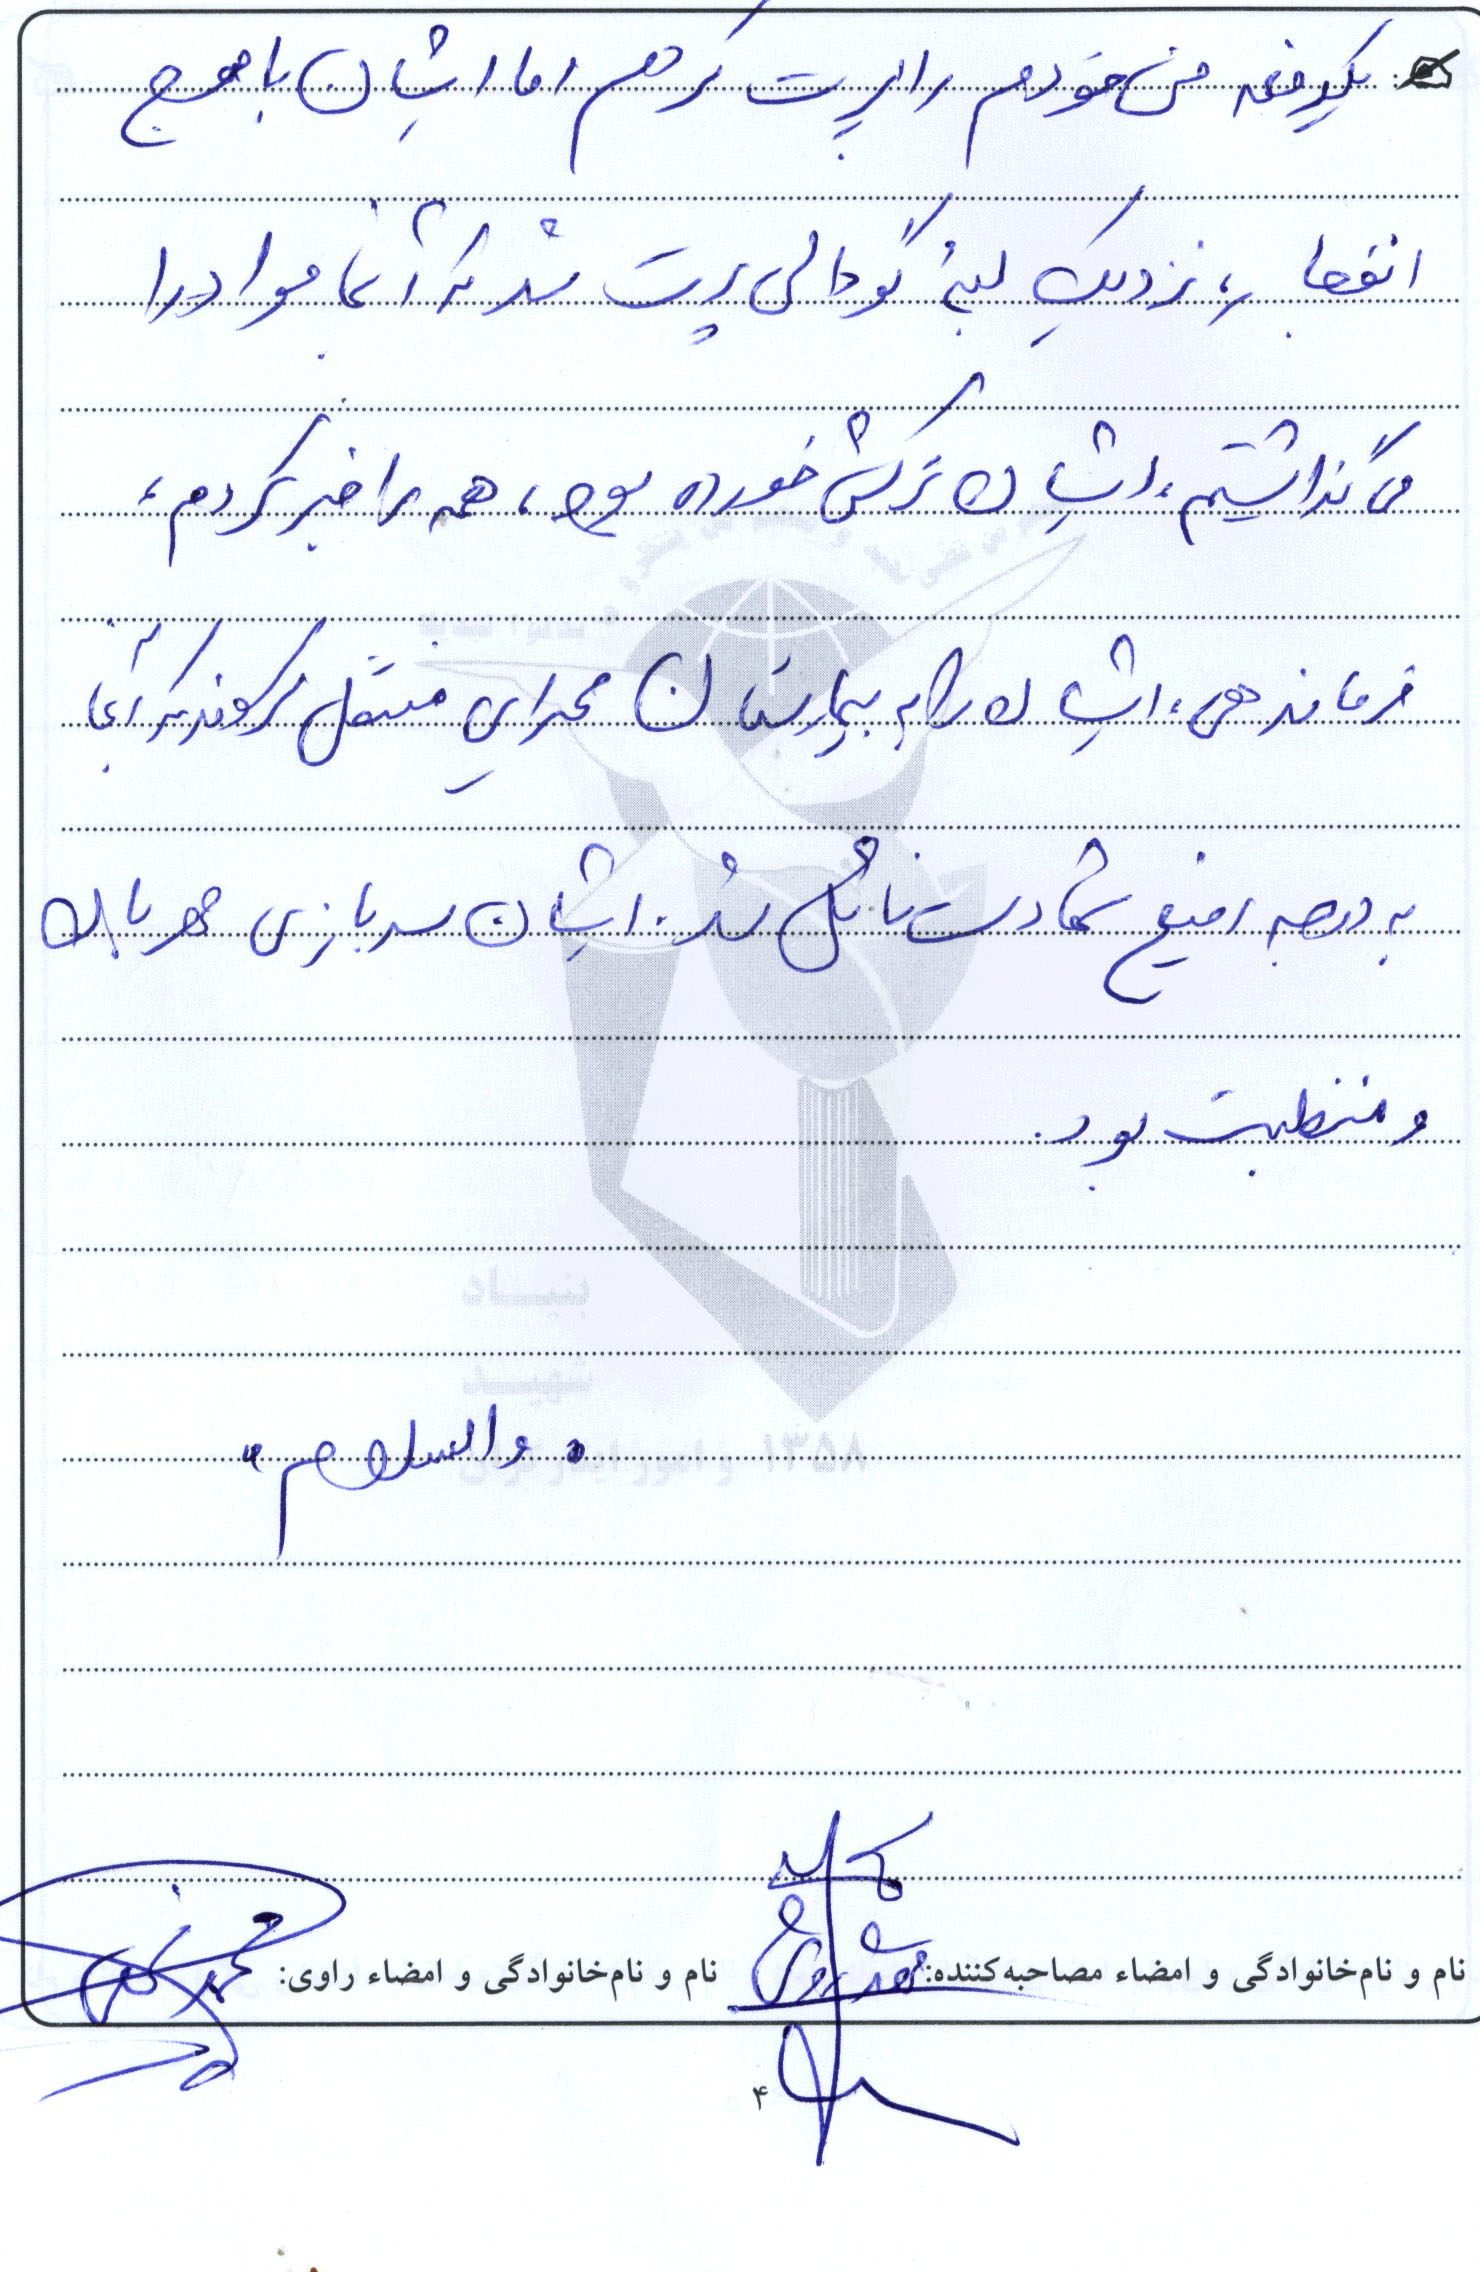 یکدفعه من خودم را پرت کردم اما ایشان با موج
انفجار، نزدیک لبۀ گودالی پرت شد که آنجا مواد را
می گذاشتیم، ایشان ترکش خورده بود، همه را خبر کردم،
فرماندهی، ایشان را به بیمارستان صحرایی منتقل کردند که آنجا
به درجه رفیع شهادت نائل شد. ایشان سربازی مهربان
و منضبط بود.
بنیاد
شهید
۱۳۵۸ و امور ایثارگران
والسلام
نام و نام‌خانوادگی و امضاء مصاحبه‌کننده:
نام و نام‌خانوادگی و امضاء راوی:
۴